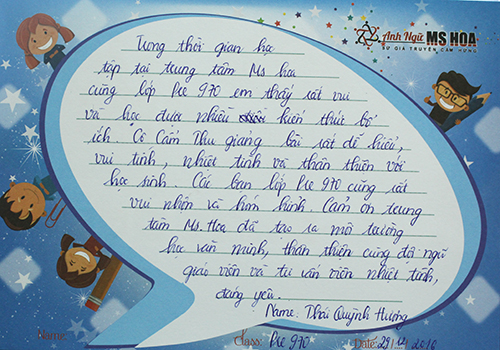 Anh Ngữ MS HOA
SỨ GIẢ TRUYỀN CẢM HỨNG
Trong thời gian học
tập tại trung tâm Ms hoa
cùng lớp Pre 970 em thấy rất vui
và học được nhiều kiến thức bổ
ích. Cô Cẩm Thu giảng bài rất dễ hiểu,
vui tính, nhiệt tình và thân thiện với
học sinh. Các bạn lớp Pre 970 cũng rất
vui nhộn và hóm hỉnh. Cảm ơn trung
tâm Ms.Hoa đã tạo ra môi trường
học văn minh, thân thiện cùng đội ngũ
giáo viên và tư vấn viên nhiệt tình,
đáng yêu.
Name: Thái Quỳnh Hương
Name:
Class: Pre 970
Date: